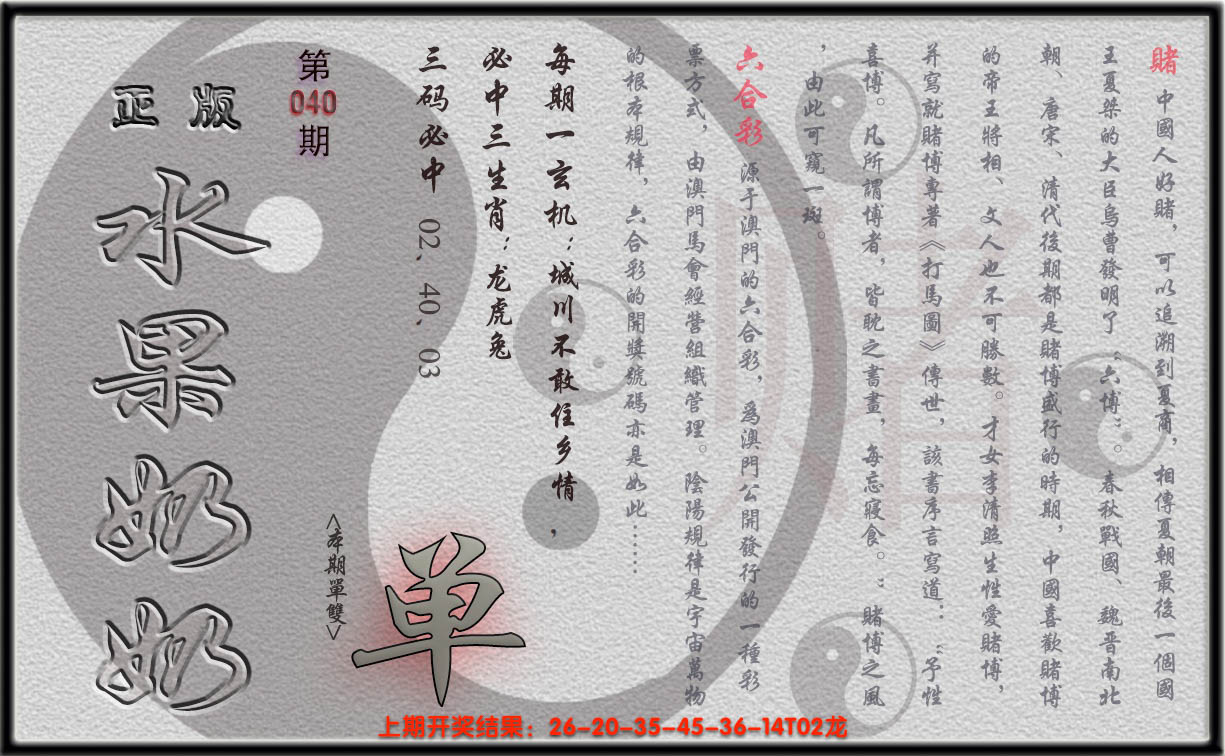 賭 中國人好賭，可以追溯到夏商，相傳夏朝最後一個國
王夏桀的大臣烏曹發明了“六博”。春秋戰國、魏晋南北
朝、唐宋、清代後期都是賭博盛行的時期，中國喜歡賭博
的帝王將相、文人也不可勝數。才女李清照生性愛賭博，
并寫就賭博專著《打馬圖》傳世，該書序言寫道：“予性
喜博。凡所謂博者，皆耽之書晝，每忘寢食。”賭博之風
，由此可窺一斑。
六合彩 源于澳門的六合彩，爲澳門公開發行的一種彩
票方式，由澳門馬會經營組織管理。陰陽規律是宇宙萬物
的根本規律，六合彩的開獎號碼亦是如此……
每期一玄机：城川不敢住乡情，
必中三生肖：龙虎兔
三码必中 02、40、03
第
040
期
<本期單雙>
单
正版
水果奶奶
赌
上期开奖结果：26-20-35-45-36-14T02龙